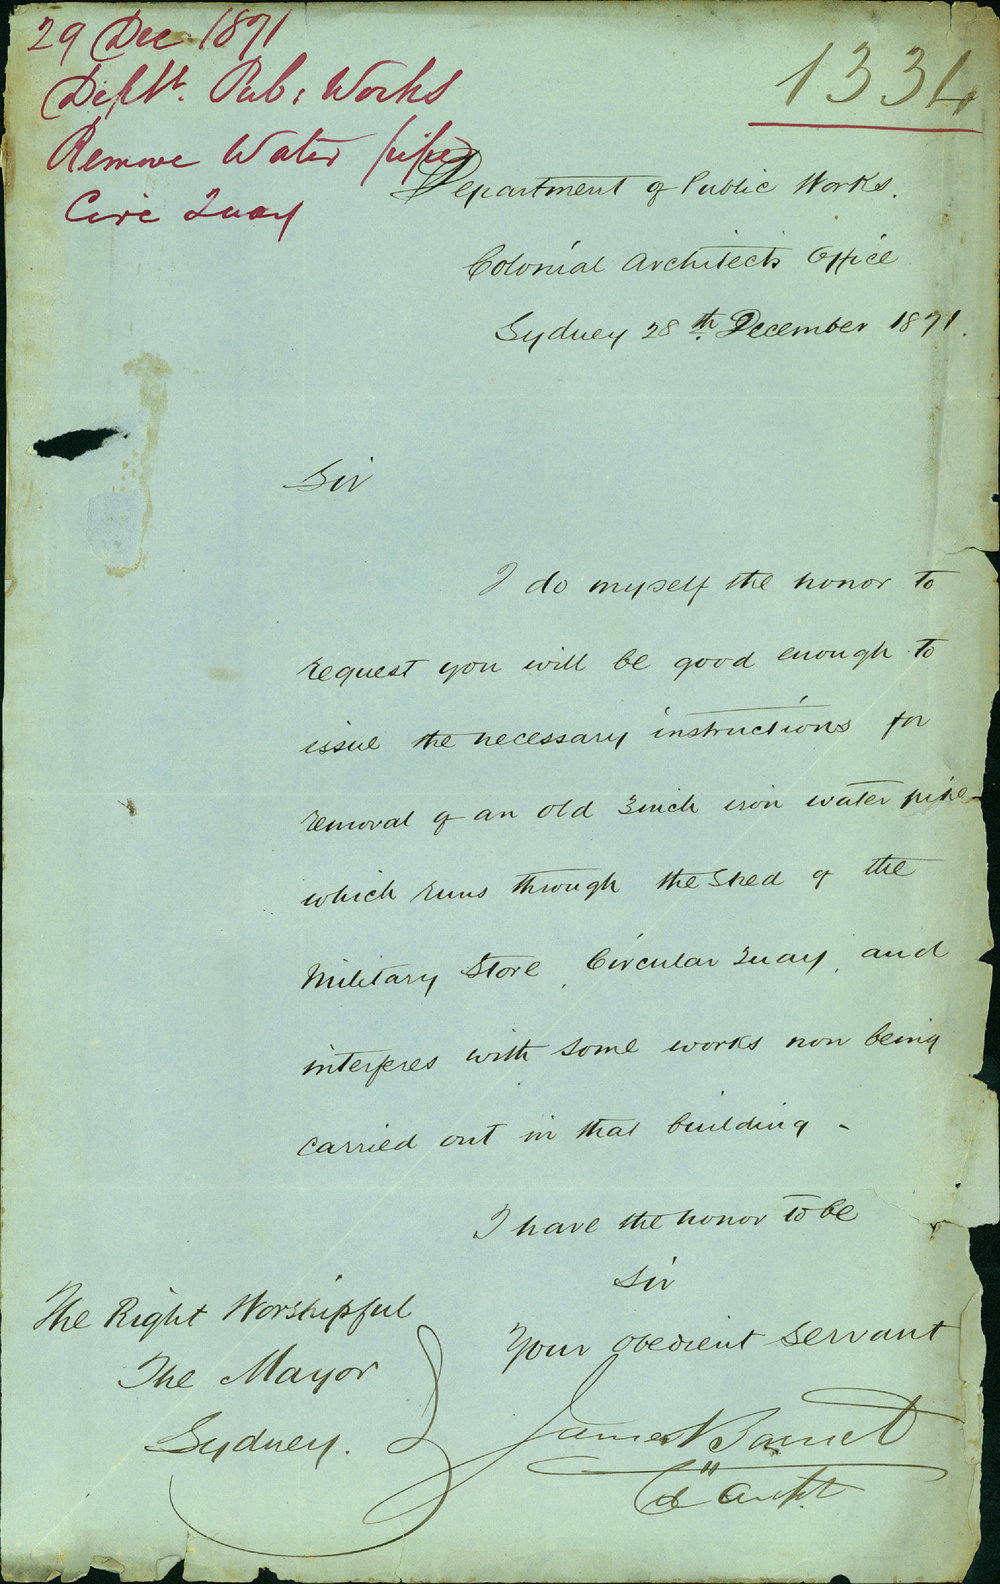 29 Dec 1871
Deptt. Pub: Works
Remove Water pipes
Circ Quay
1334
Department of Public Works.
Colonial Architects Office
Sydney 28th December 1871.
Sir
I do myself the honor to
request you will be good enough to
issue the necessary instructions for
removal of an old 3 inch iron water pipe
which runs through the Shed of the
Military Store, Circular Quay, and
interferes with some works now being
carried out in that building -
I have the honor to be
Sir
Your obedient servant
James Barnet
Col Archt
The Right Worshipful
The Mayor
Sydney.